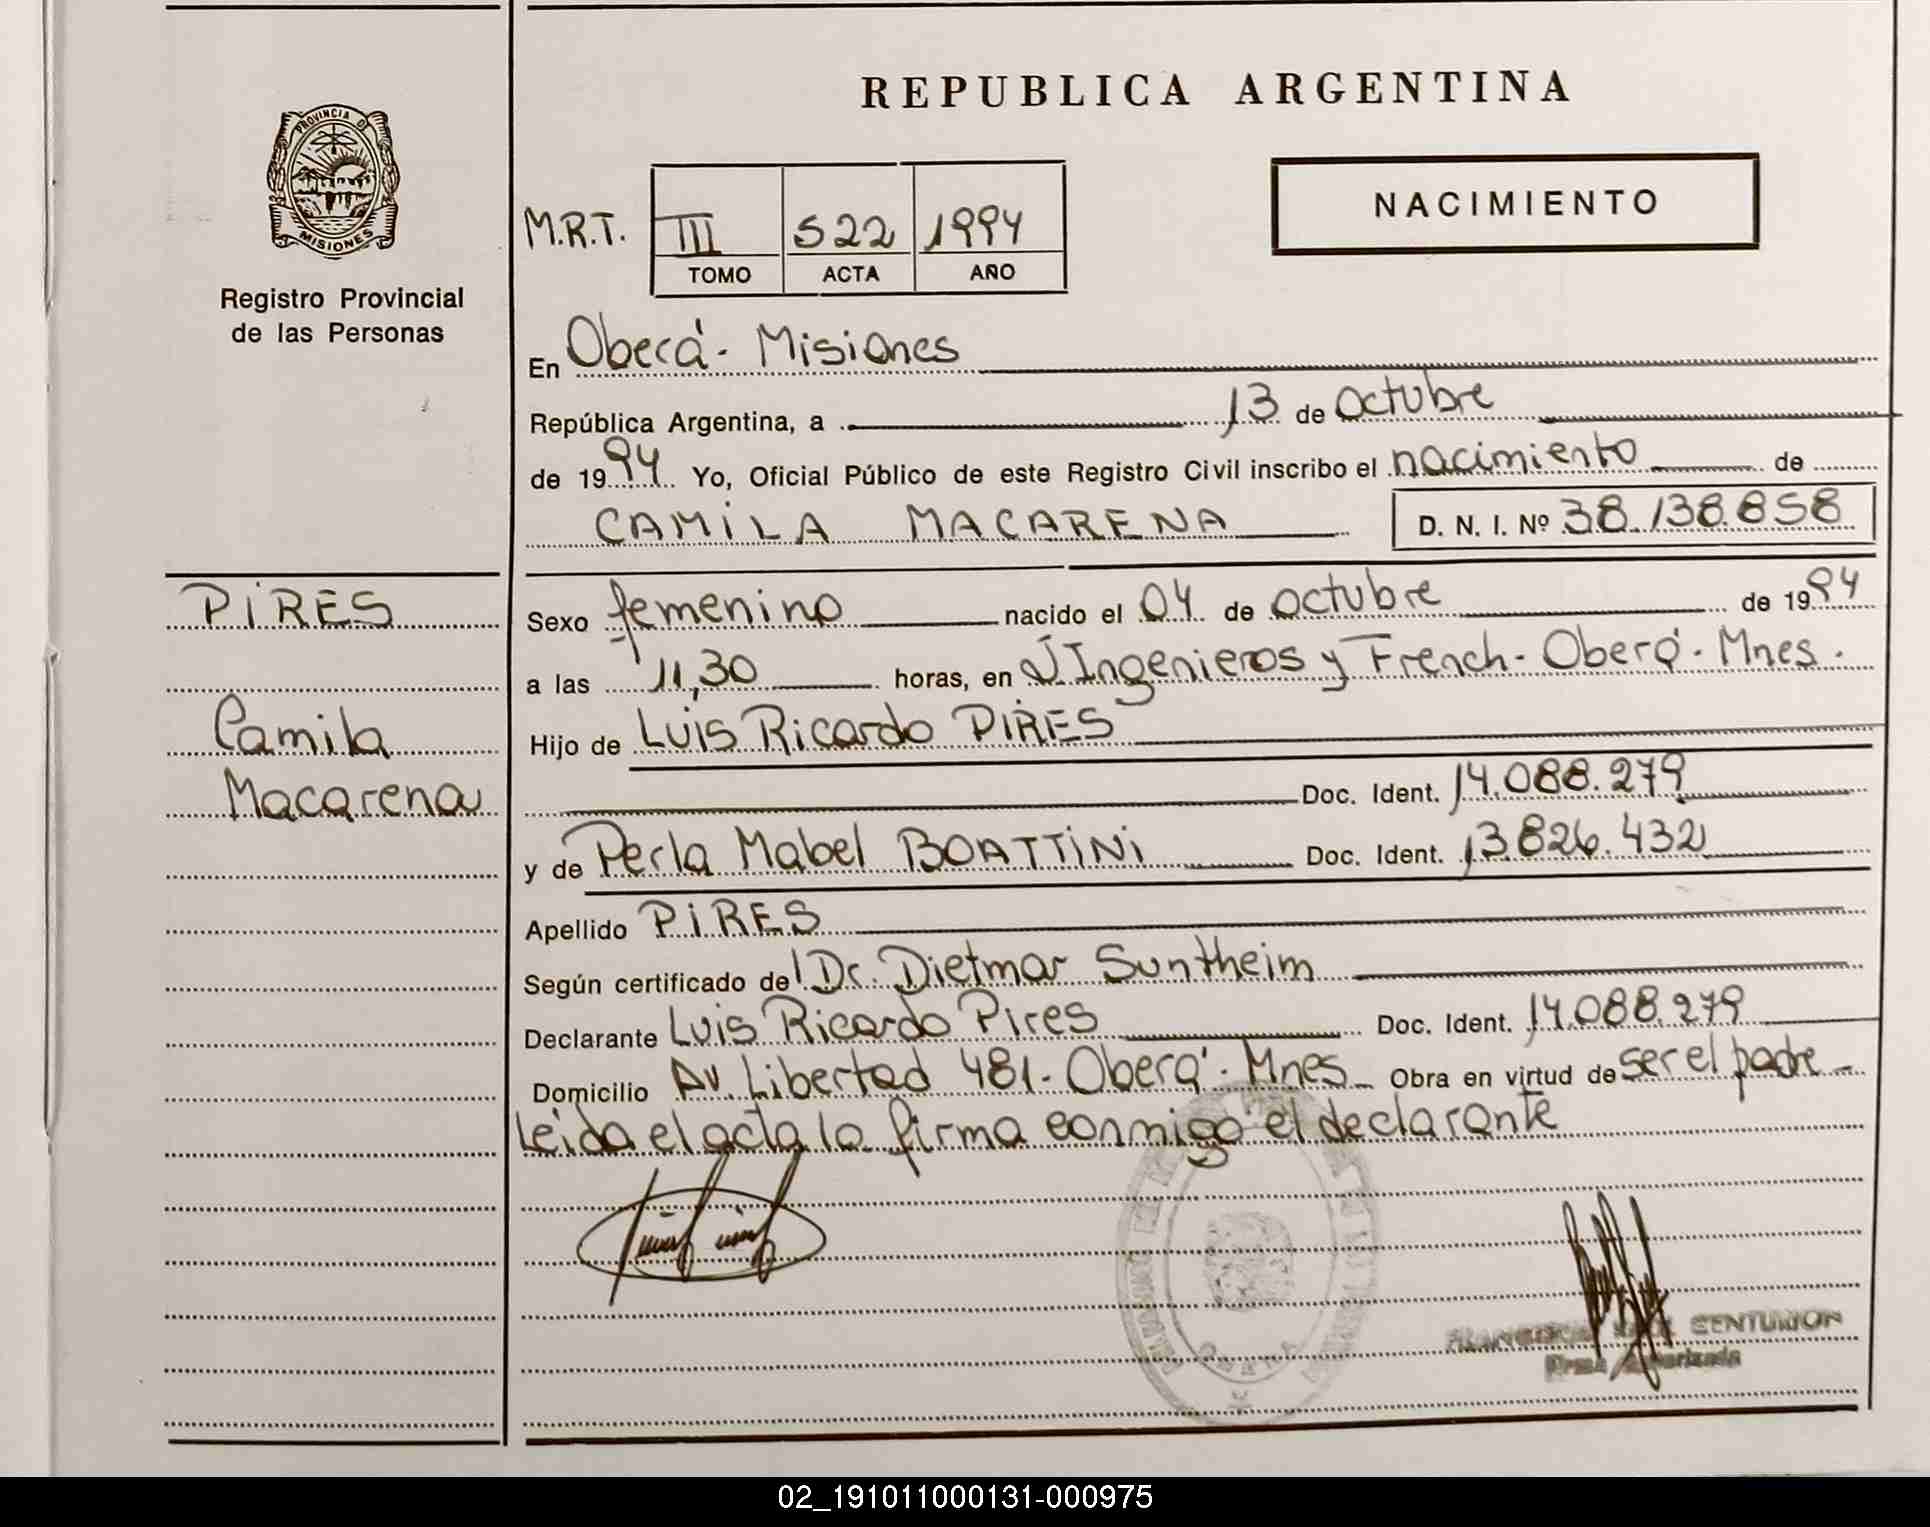 REPUBLICA ARGENTINA
PROVINCIA D
MISIONES
Registro Provincial
de las Personas
M.R.T.
III 522 1994
TOMO ACTA AÑO
NACIMIENTO
En Oberá - Misiones
República Argentina, a 13 de Octubre
de 1994 Yo, Oficial Público de este Registro Civil inscribo el nacimiento de
CAMILA MACARENA D. N. I. Nº 38.138.858
PIRES
Camila
Macarena
Sexo femenino nacido el 04 de octubre de 1994
a las 11,30 horas, en Ingenieros y French - Oberá - Mnes.
Hijo de Luis Ricardo PIRES
Doc. Ident. 14.088.279
y de Perla Mabel BOATTINI Doc. Ident. 13.826.432
Apellido PIRES
Según certificado del Dr. Dietmar Suntheim
Declarante Luis Ricardo Pires Doc. Ident. 14.088.279
Domicilio Av. Libertad 481 - Oberá - Mnes Obra en virtud de ser el padre -
Leida el acta la firma conmigo el declarante
CENTURION
Firma Autorizada
02_191011000131-000975